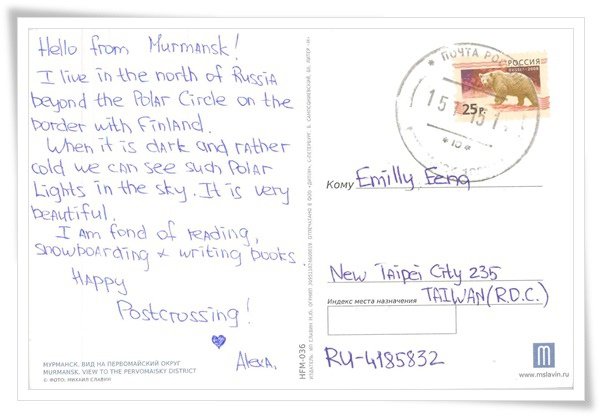 Hello from Murmansk!
I live in the north of Russia
beyond the Polar Circle on the
border with Finland.
When it is dark and rather
cold we can see such Polar
Lights in the sky. It is very
beautiful.
I am fond of reading,
snowboarding & writing books.
Happy
Postcrossing!
Alexa.
МУРМАНСК. ВИД НА ПЕРВОМАЙСКИЙ ОКРУГ
MURMANSK. VIEW TO THE PERVOMAISKY DISTRICT
© ФОТО: МИХАИЛ СЛАВИН
HFM-036
ПОЧТА РОС
РОССИЯ
25р.
Кому Emilly Feng
New Taipei City 235
TAIWAN (R.O.C.)
Индекс места назначения
RU-4185832
www.mslavin.ru